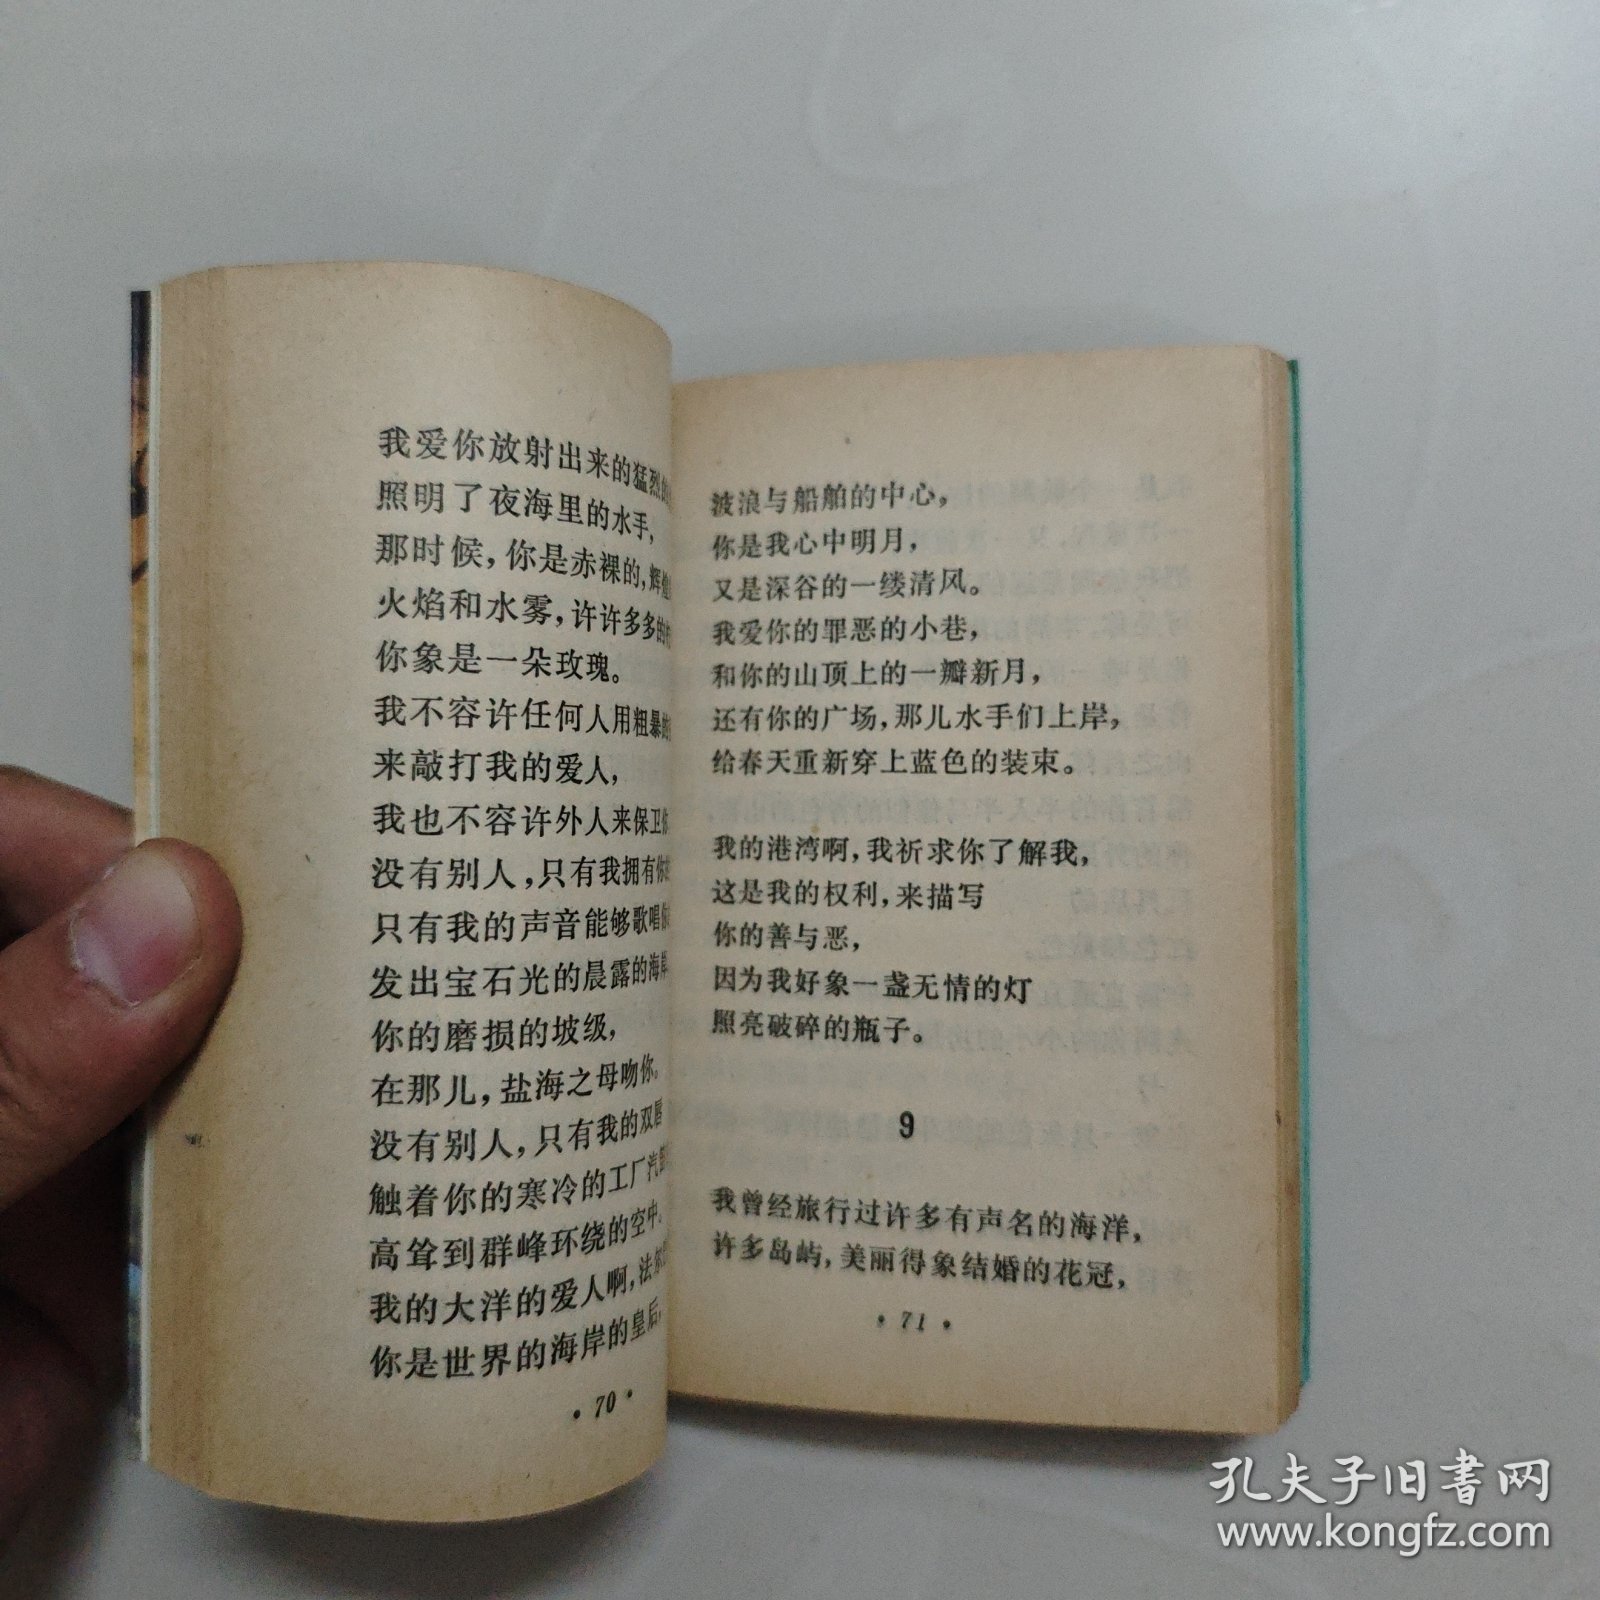 我爱你放射出来的猛烈的
照明了夜海里的水手，
那时候，你是赤裸的，辉
火焰和水雾，许许多多的
你象是一朵玫瑰。
我不容许任何人用粗暴的
来敲打我的爱人，
我也不容许外人来保卫你
没有别人，只有我拥有你
只有我的声音能够歌唱你
发出宝石光的晨露的海岸
你的磨损的坡级，
在那儿，盐海之母吻你。
没有别人，只有我的双唇
触着你的寒冷的工厂汽
高耸到群峰环绕的空中，
我的大洋的爱人啊，法尔
你是世界的海岸的皇后，
• 70 •
波浪与船舶的中心，
你是我心中明月，
又是深谷的一缕清风。
我爱你的罪恶的小巷，
和你的山顶上的一瓣新月，
还有你的广场，那儿水手们上岸，
给春天重新穿上蓝色的装束。
我的港湾啊，我祈求你了解我，
这是我的权利，来描写
你的善与恶，
因为我好象一盏无情的灯
照亮破碎的瓶子。
9
我曾经旅行过许多有声名的海洋，
许多岛屿，美丽得象结婚的花冠，
• 71 •
孔夫子旧书网
www.kongfz.com